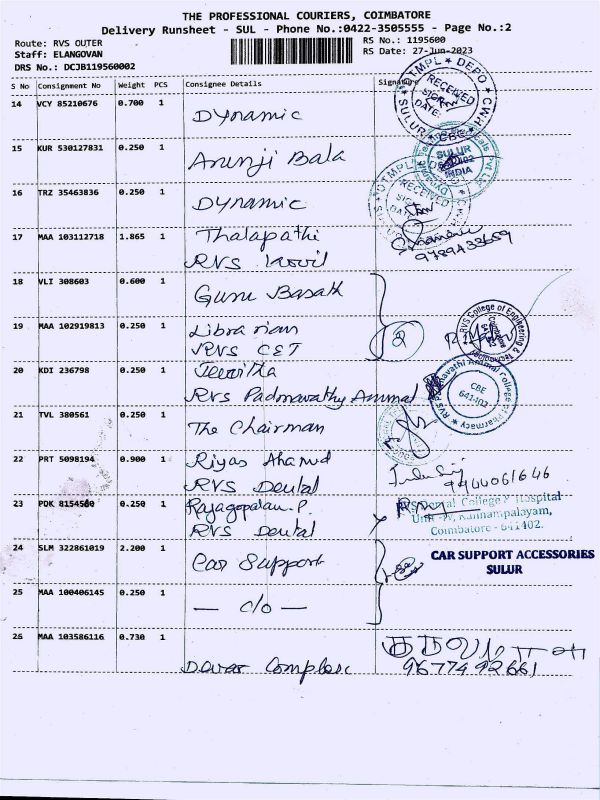 THE PROFESSIONAL COURIERS, COIMBATORE
Delivery Runsheet - SUL - Phone No.:0422-3505555 - Page No.:2
Route: RVS OUTER
RS No.: 1195600
Staff: ELANGOVAN
RS Date: 27-Jun-2023
DRS No.: DCJB119560002
S No Consignment No Weight PCS Consignee Details Signature
14 VCY 85210676 0.700 1 Dynamic
RECEIVED
SIGN.
DATE:
SULUR
15 KUR 530127831 0.250 1 Arunji Bala
SULUR
INDIA
16 TRZ 35463836 0.250 1 Dynamic
RECEIVED
17 MAA 103112718 1.865 1 Thalapathi
RVS
9789433659
18 VLI 308603 0.600 1 Guru
19 MAA 102919813 0.250 1 Librarian
RVS CET
2
RVS College of Engineering &
Coimbatore
20 KDI 236798 0.250 1
RVS Padmavathy Ammal
CBE
641402
21 TVL 380561 0.250 1 The Chairman
22 PRT 5098194 0.900 1 Riyas Ahamed
RVS Dental
23 PDK 8154560 0.250 1 Rajagopalan.P.
RVS Dental
RVS Dental College & Hospital
Kannampalayam,
Coimbatore - 641402.
24 SLM 322861019 2.200 1 Car Support
CAR SUPPORT ACCESSORIES
SULUR
25 MAA 100406145 0.250 1 — c/o —
26 MAA 103586116 0.730 1
Complex
9677492661